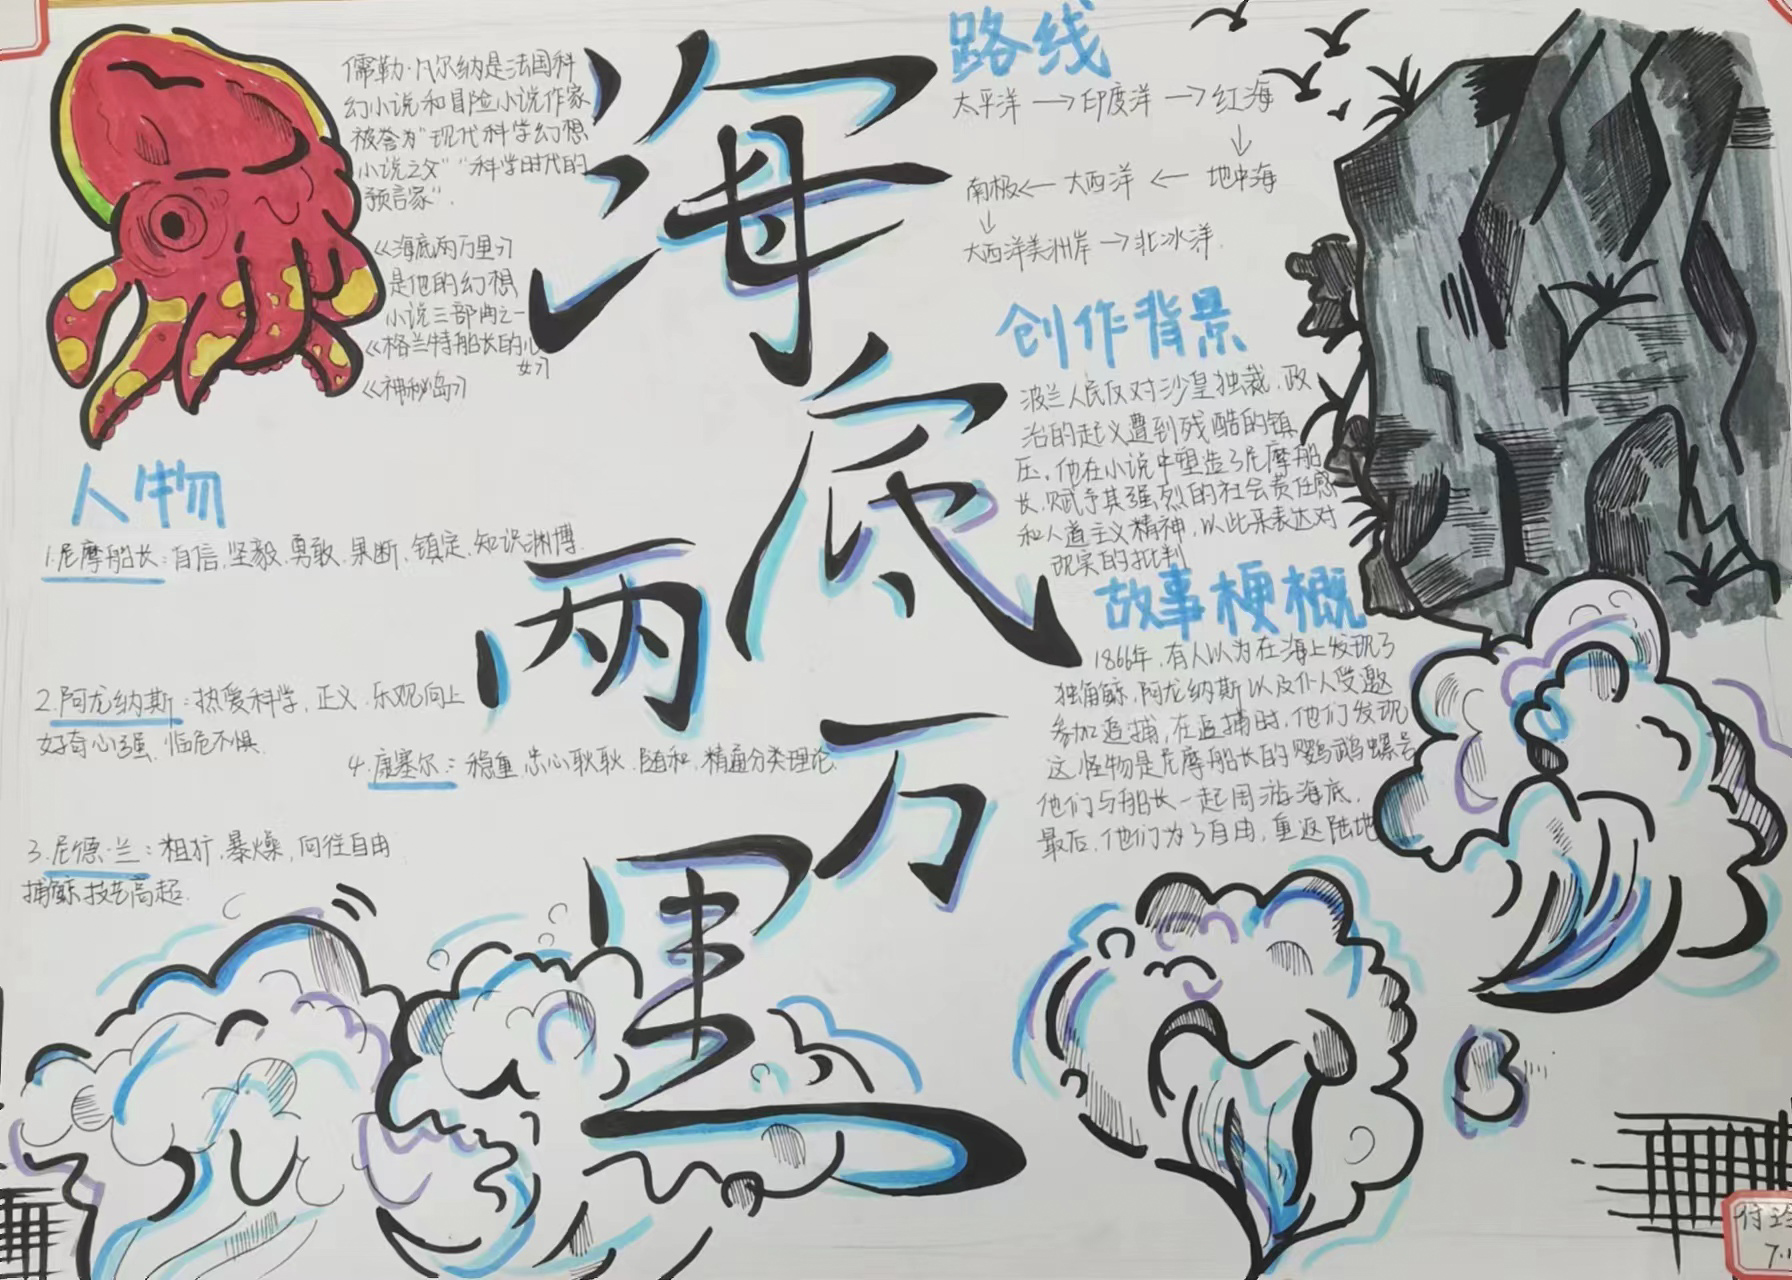 儒勒·凡尔纳是法国科
幻小说和冒险小说作家
被誉为"现代科学幻想
小说之父""科学时代的
预言家".
《海底两万里》
是他的幻想
小说三部曲之一
《格兰特船长的儿
女》
《神秘岛》
海底两万里
路线
太平洋→印度洋→红海
↓
南极←大西洋←地中海
↓
大西洋美洲岸→北冰洋.
创作背景
波兰人民反对沙皇独裁.政
治的起义遭到残酷的镇
压.他在小说中塑造了尼摩船
长.赋予其强烈的社会责任感
和人道主义精神,以此来表达对
现实的批判
故事梗概
1866年.有人以为在海上发现了
独角鲸,阿龙纳斯以及仆人受邀
参加追捕,在追捕时.他们发现
这怪物是尼摩船长的鹦鹉螺号
他们与船长一起周游海底.
最后,他们为了自由,重返陆地
人物
1.尼摩船长:自信.坚毅.勇敢.果断.镇定.知识渊博.
2.阿龙纳斯:热爱科学,正义.乐观向上
好奇心强.临危不惧.
4.康塞尔:稳重.忠心耿耿.随和,精通分类理论.
3.尼德·兰:粗犷.暴燥,向往自由
捕鲸技艺高超.
付
7.